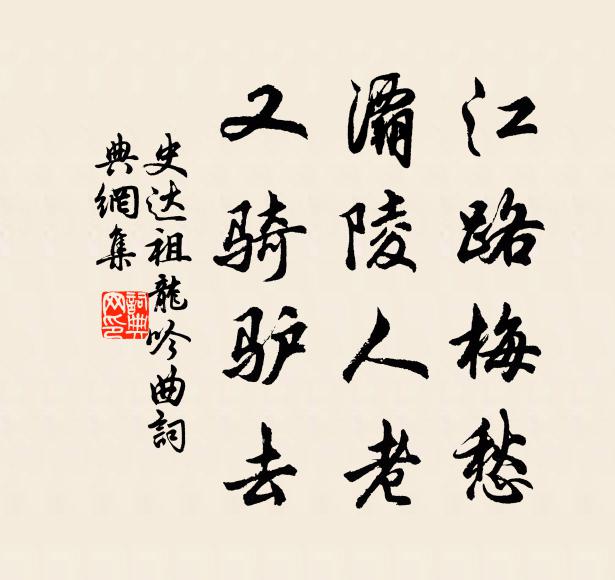 江路梅愁
灞陵人老
又骑驴去
史达祖龍吟曲詞
典網集
詞典網印